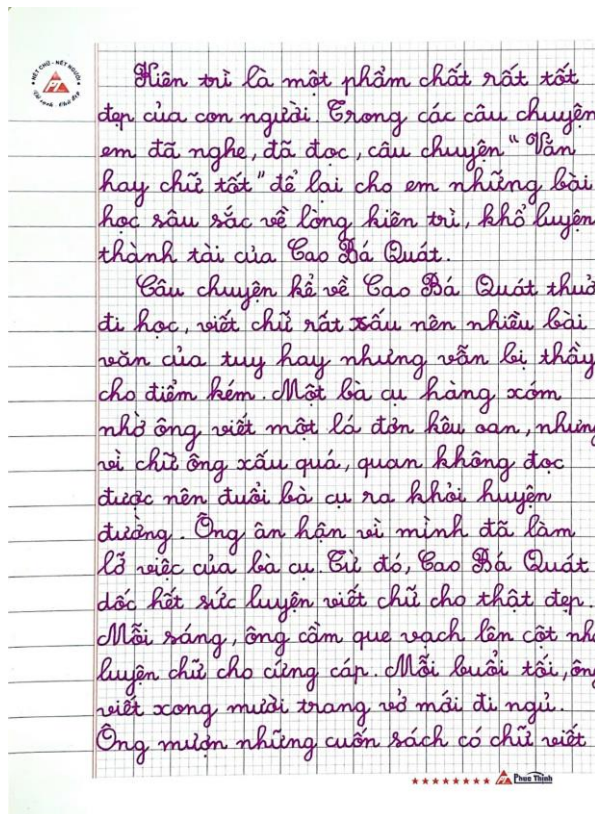 NÉT CHỮ - NẾT NGƯỜI
PT
Kiên trì là một phẩm chất rất tốt
đẹp của con người. Trong các câu chuyện
em đã nghe, đã đọc, câu chuyện "Văn
hay chữ tốt" để lại cho em những bài
học sâu sắc về lòng kiên trì, khổ luyện
thành tài của Cao Bá Quát.
Câu chuyện kể về Cao Bá Quát thuở
đi học, viết chữ rất xấu nên nhiều bài
văn của tuy hay nhưng vẫn bị thầy
cho điểm kém. Một bà cụ hàng xóm
nhờ ông viết một lá đơn kêu oan, nhưng
vì chữ ông xấu quá, quan không đọc
được nên đuổi bà cụ ra khỏi huyện
đường. Ông ân hận vì mình đã làm
lỡ việc của bà cụ. Từ đó, Cao Bá Quát
dốc hết sức luyện viết chữ cho thật đẹp.
Mỗi sáng, ông cầm que vạch lên cột nh
luyện chữ cho cứng cáp. Mỗi buổi tối, ông
viết xong mười trang vở mới đi ngủ.
Ông mượn những cuốn sách có chữ viết
PT Phuc Thinh